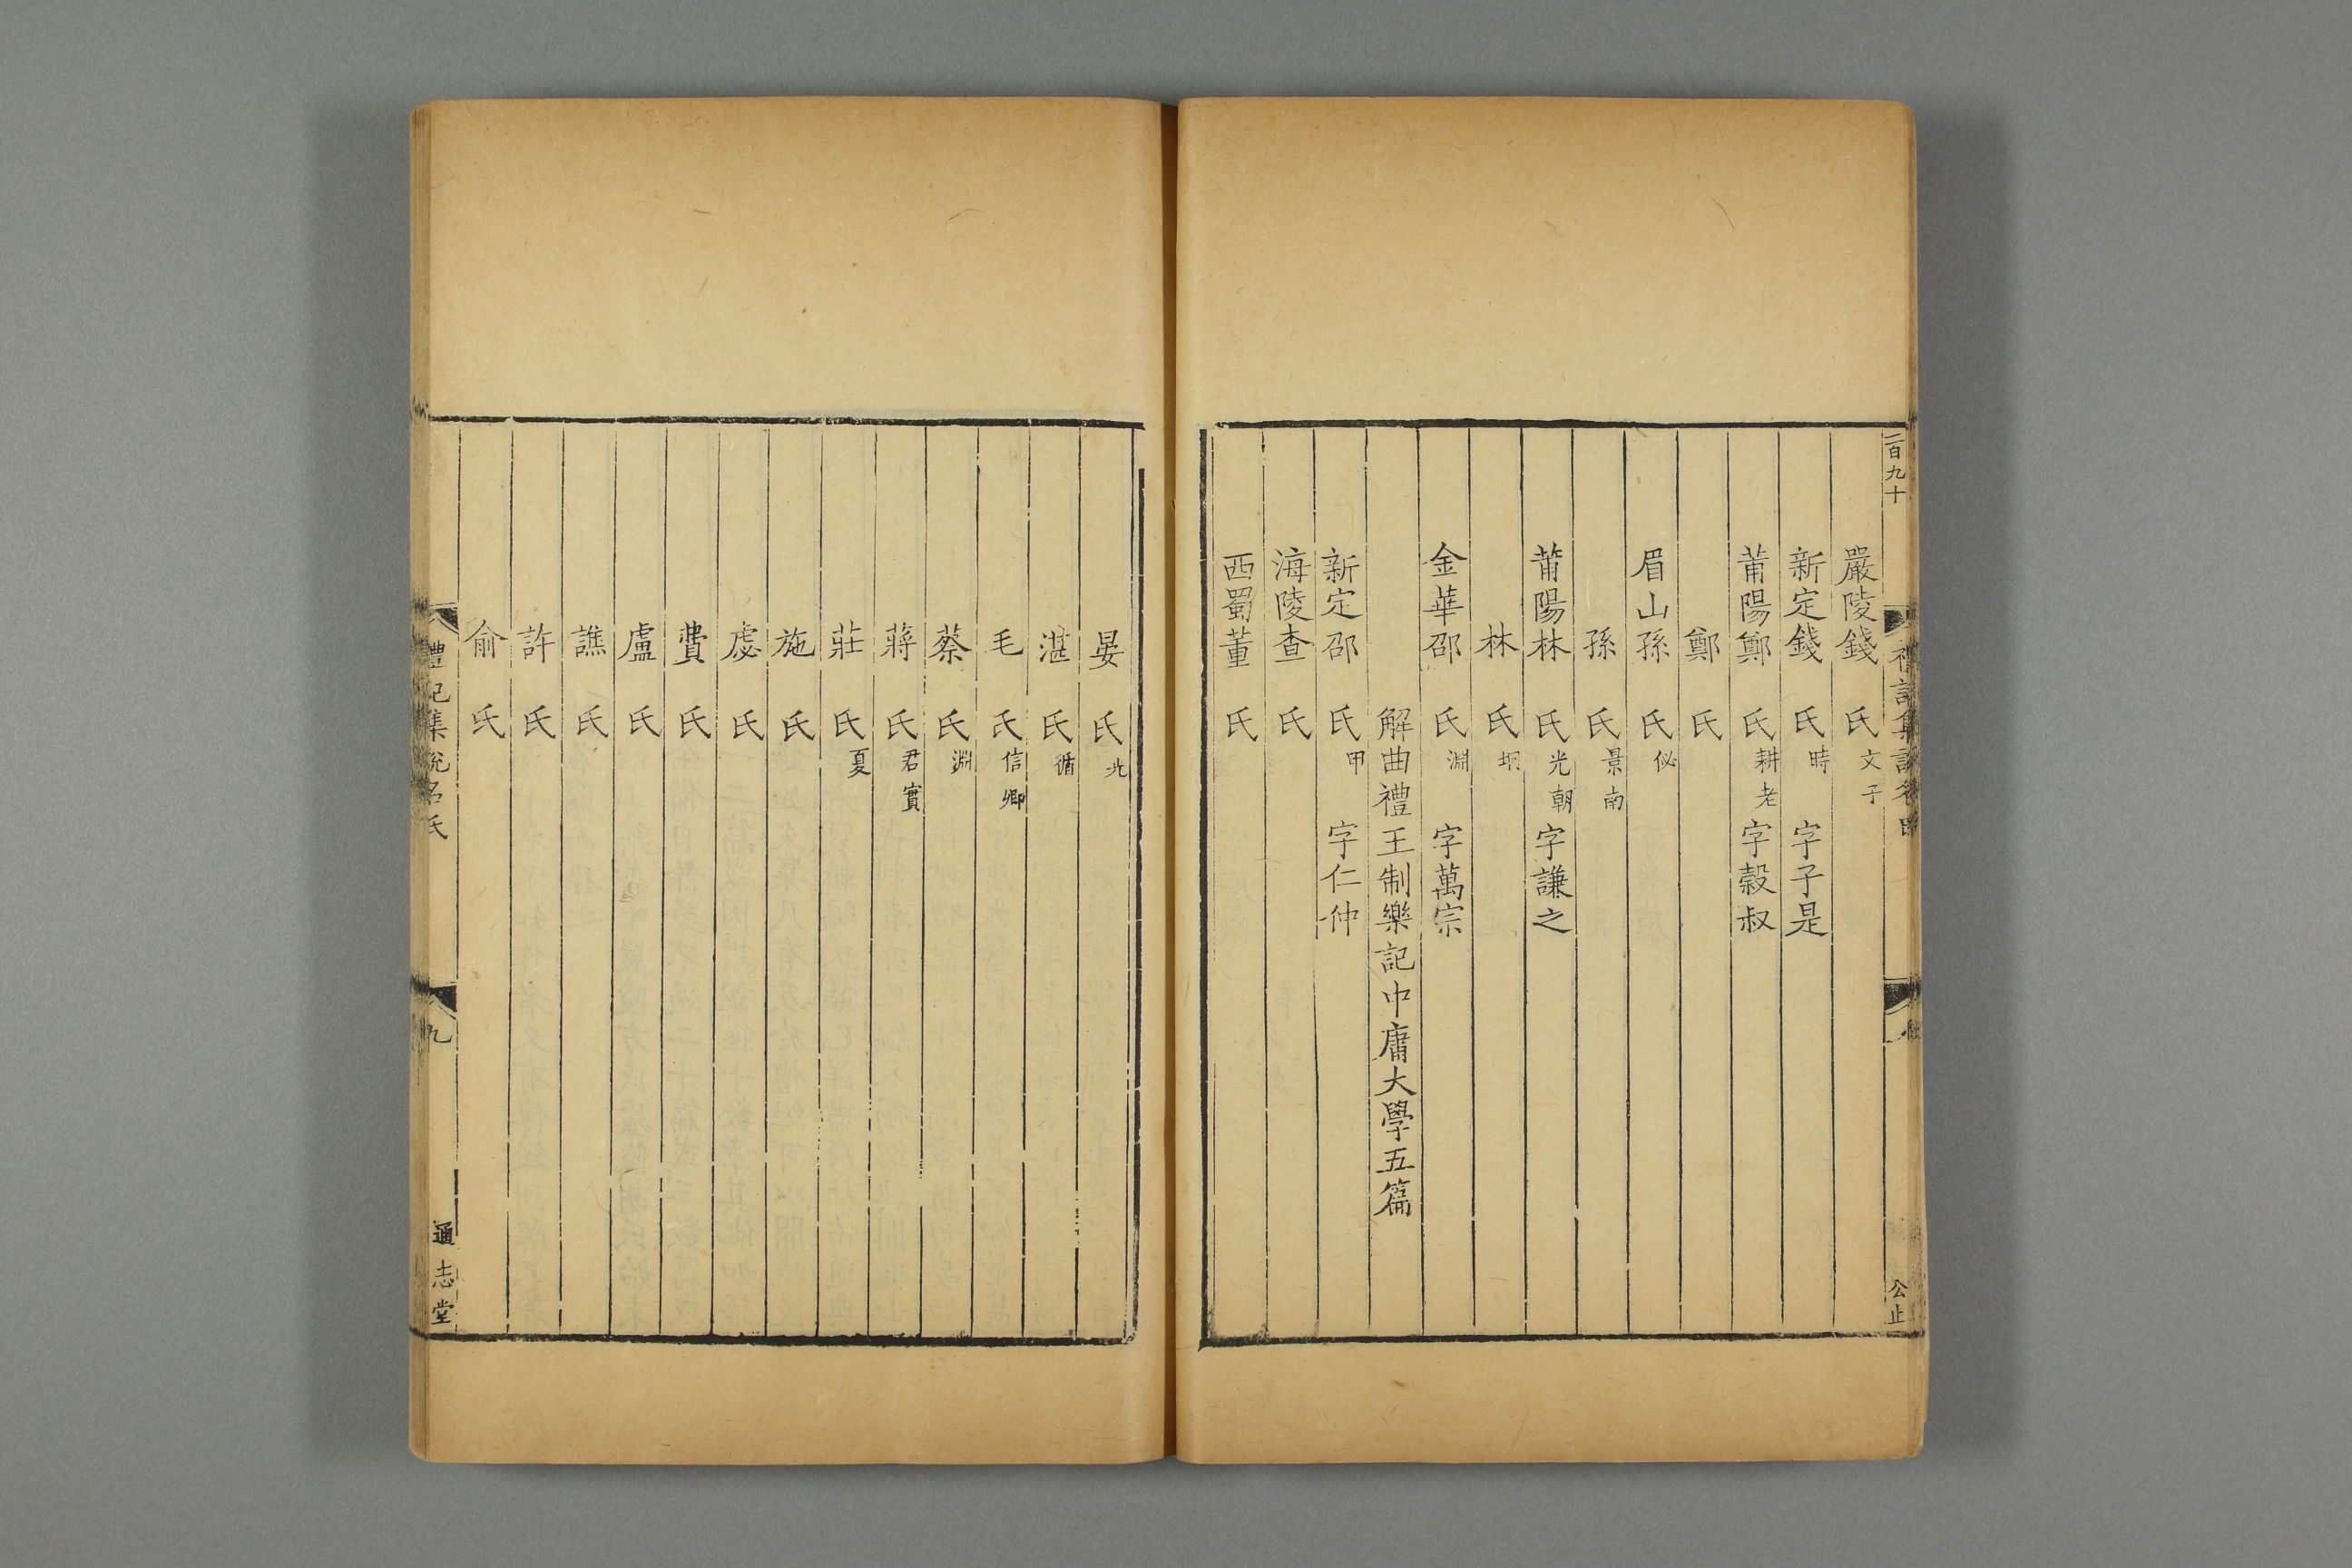 二百九十
公止
嚴陵錢氏文子
新定錢氏時字子是
莆陽鄭氏耕老字榖叔
鄭氏
眉山孫氏佖
孫氏景南
莆陽林氏光朝字謙之
林氏坰
金華邵氏淵字萬宗
解曲禮王制樂記中庸大學五篇
新定邵氏甲字仁仲
海陵查氏
西蜀董氏
晏氏光
湛氏循
毛氏信卿
蔡氏淵
蔣氏君實
莊氏夏
施氏
虙氏
費氏
盧氏
譙氏
許氏
俞氏
禮記集說名氏
九
通志堂